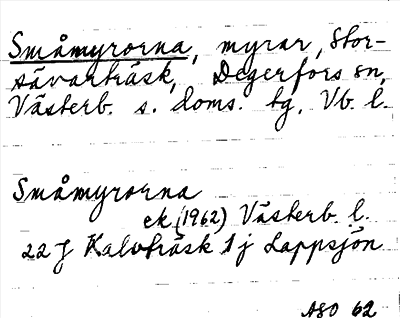 Småmyrorna, myrar, Stor-
sävarträsk, Degerfors sn,
Västerb. s. doms. tg, Vb. l.
Småmyrorna
ek (1962) Västerb. l.
22 J Kalvträsk 1 j Lappsjön
ASO 62